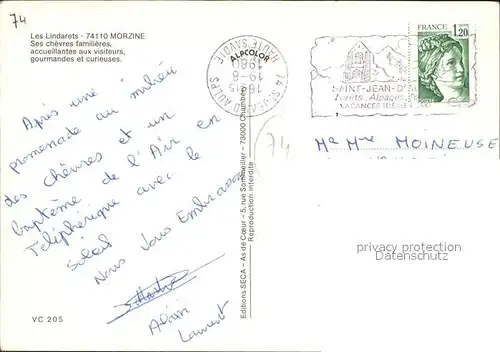 74
Les Lindarets - 74110 MORZINE
Ses chèvres familières,
accueillantes aux visiteurs,
gourmandes et curieuses.
Après une milieu
promenade au milieu
des chèvres et un
baptême de l'Air en
Téléphérique avec le
Soleil
Nous Vous Embrassons
Alain
Laurent
VC 205
ALPCOLOR
Editions SECA - As de Cœur - 5, rue Sommeiller - 73000 Chambéry
Reproduction interdite
74 ST-JEAN-D'AULPS
HAUTE SAVOIE
19-8
1980
SAINT-JEAN-D'AU
Forêts Alpages
VACANCES IDÉALES
FRANCE
1,20
74
Mr Mme MOINEUSE
privacy protection
Datenschutz